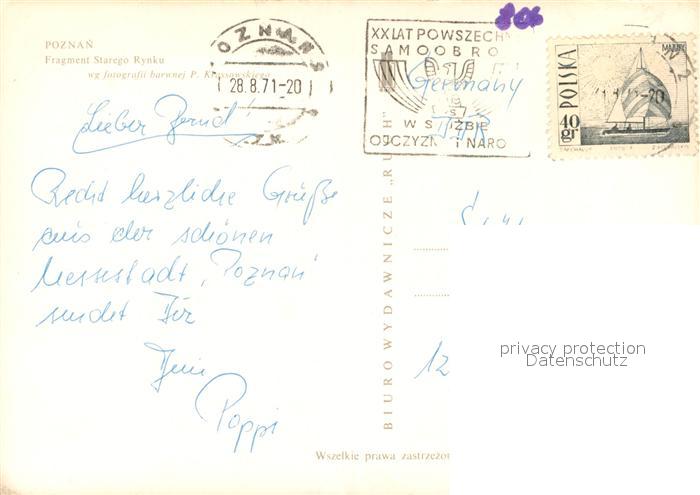 POZNAŃ
Fragment Starego Rynku
wg fotografii barwnej P. Krassowskiego
28.8.71-20
XX LAT POWSZECHN
SAMOOBRO
W SŁUŻBIE
OJCZYZNY I NARO
Germany
DDR
POLSKA
40 gr
Lieber Bernd!
Recht herzliche Grüße
aus der schönen
Messestadt "Poznań"
sendet Dir
Dein
Pappi
BIURO WYDAWNICZE „RUCH"
12
privacy protection
Datenschutz
Wszelkie prawa zastrzeżon